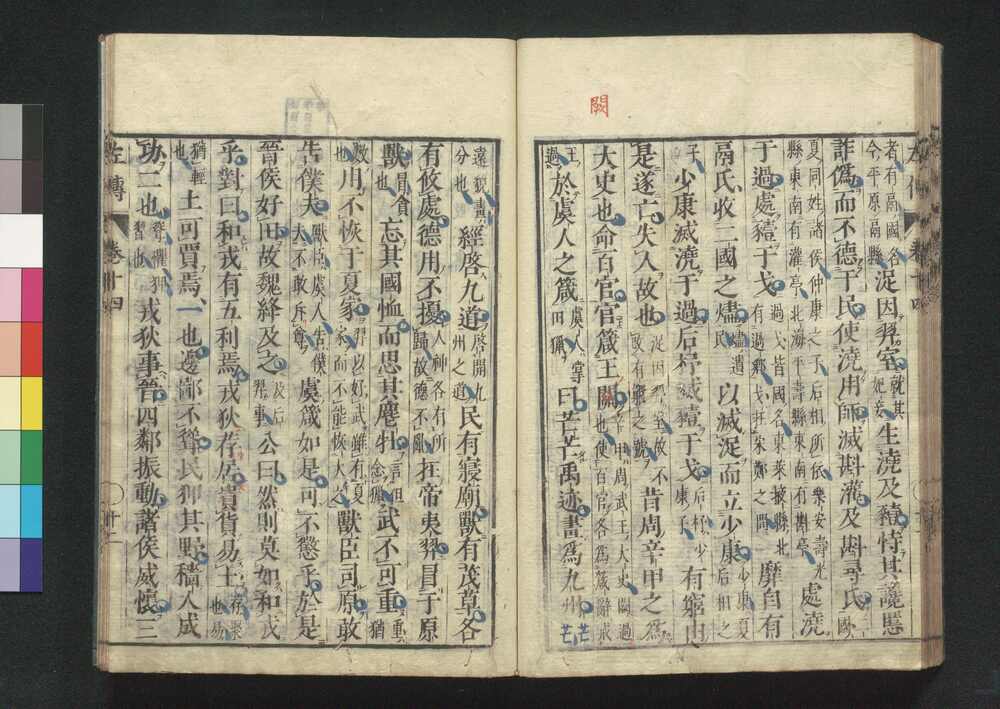 闕
左傳 卷十四
者有鬲國名今平原鬲縣浞因羿室就其妃妾生澆及豷恃其讒慝
詐偽而不德于民使澆用師滅斟灌及斟尋氏二國
夏同姓諸侯仲康之子后相所依樂安壽光縣東南有灌亭北海平壽縣東南有斟亭處澆
于過處豷于戈過戈皆國名東萊掖縣北有過鄉戈在宋鄭之間靡自有
鬲氏收二國之燼燼遺民以滅浞而立少康少康夏后相之
子少康滅澆于過后杼滅豷于戈后杼少康子有窮由
是遂亡失人故也浞因羿室故不改有窮之號昔周辛甲之為
大史也命百官官箴王闕辛甲周武王大史闕過也使百官各為箴辭戒
王過於虞人之箴虞人掌田獵曰芒芒禹迹畫為九州芒芒
遠貌畫分也經啓九道啓開九州之道民有寢廟獸有茂草各
有攸處德用不擾人神各有所歸故德不亂在帝夷羿冒于原
獸冒貪也忘其國恤而思其麀牡言但念獵武不可重重猶
數也用不恢于夏家羿以好武雖有夏家而不能恢大之獸臣司原敢
告僕夫獸臣虞人告僕夫不敢斥尊虞箴如是可不懲乎於是
晉侯好田故魏絳及之及后羿事公曰然則莫如和戎
乎對曰和戎有五利焉戎狄荐居貴貨易土荐聚也易
猶輕也土可賈焉一也邊鄙不聳民狎其野穡人成
功二也聳懼狎習也戎狄事晉四鄰振動諸侯威懷三
左傳 卷十四 十二